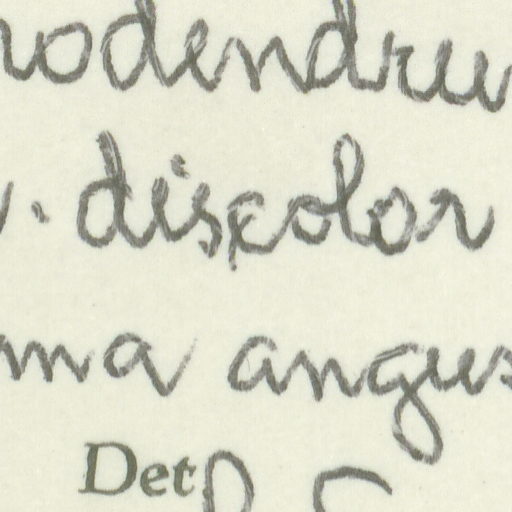 rodendru
. discolor
ma angus
Det